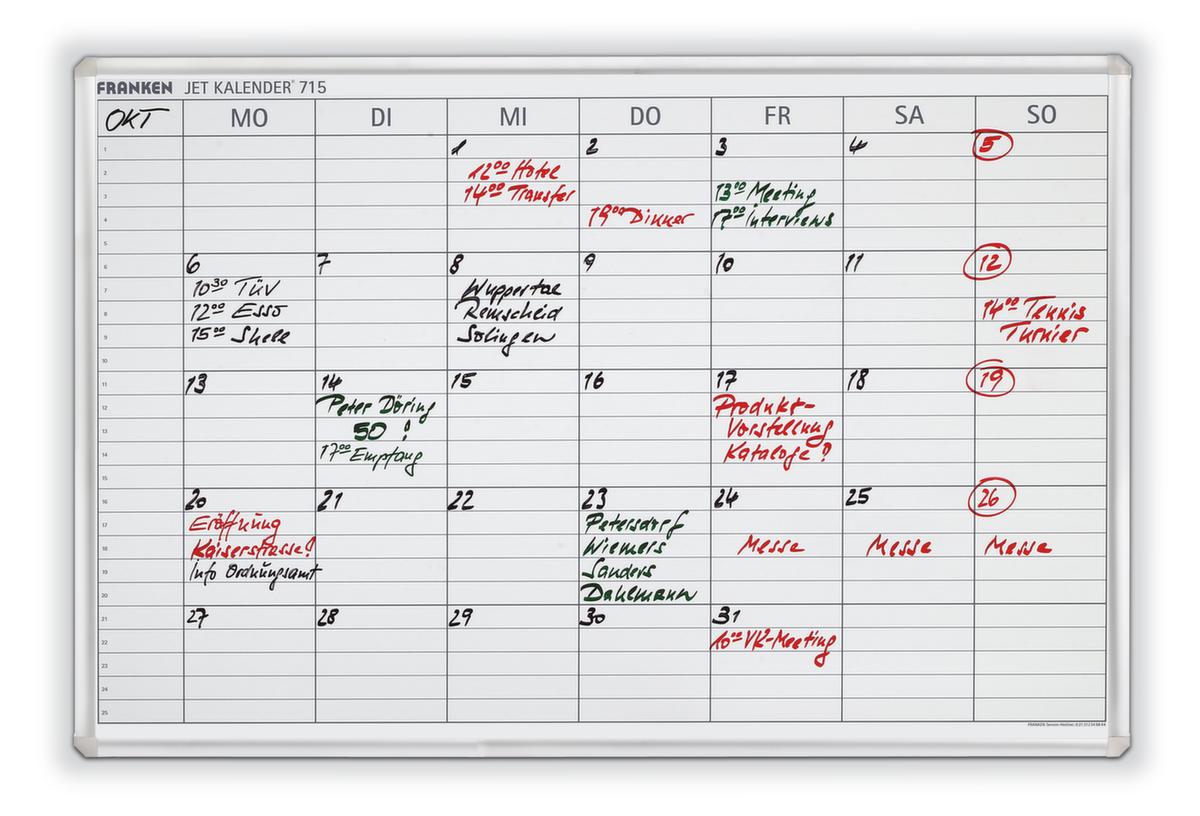 FRANKEN JET KALENDER® 715
OKT MO DI MI DO FR SA SO
1 1 2 3 4 5
2 12⁰⁰ Hotel
3 14⁰⁰ Transfer 13⁰⁰ Meeting
4 19⁰⁰ Dinner 17⁰⁰ Interviews
5
6 6 7 8 9 10 11 12
7 10³⁰ TÜV Wuppertal
8 12⁰⁰ Esso Remscheid 14⁰⁰ Tennis
9 15⁰⁰ Shell Solingen Turnier
10
11 13 14 15 16 17 18 19
12 Peter Döring Produkt-
13 50! Vorstellung
14 17⁰⁰ Empfang Kataloge?
15
16 20 21 22 23 24 25 26
17 Eröffnung Petersdorf
18 Kaiserstrasse! Wiemers Messe Messe Messe
19 Info Ordnungsamt Sanders
20 Dahlmann
21 27 28 29 30 31
22 10⁰⁰ VK-Meeting
23
24
25
FRANKEN Service-Hotline: